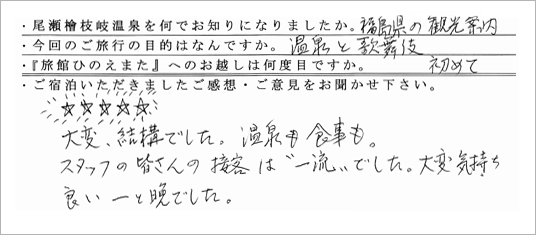 ・尾瀬檜枝岐温泉を何でお知りになりましたか。福島県の観光案内
・今回のご旅行の目的はなんですか。温泉と歌舞伎
・『旅館ひのえまた』へのお越しは何度目ですか。初めて
・ご宿泊いただきましたご感想・ご意見をお聞かせ下さい。
☆☆☆☆☆
大変、結構でした。温泉も食事も。
スタッフの皆さんの接客は〝一流〟でした。大変気持ち
良い一と晩でした。